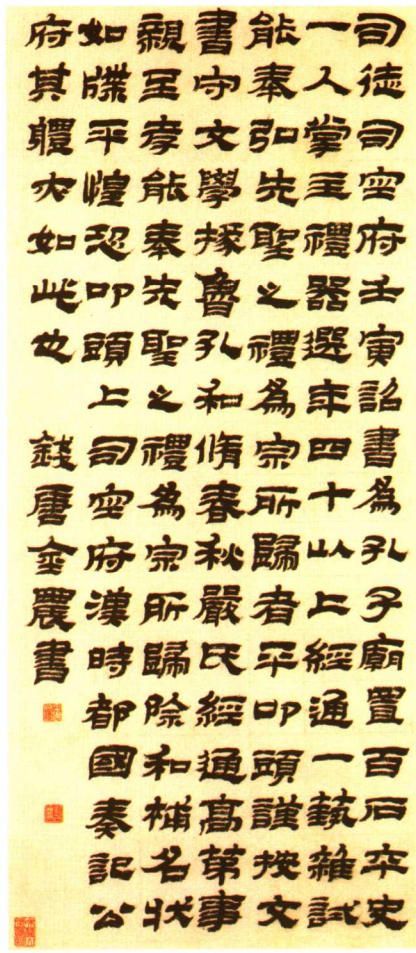 司徒司空府壬寅詔書為孔子廟置百石卒史
一人掌主禮器選年四十以上經通一藝雜試
能奉弘先聖之禮為宗所歸者平叩頭謹按文
書守文學掾魯孔和脩春秋嚴氏經通高第事
親至孝能奉先聖之禮為宗所歸除和補名狀
如牒平惶恐叩頭上司空府漢時都國奏記公
府其軆大如此也 錢唐金農書